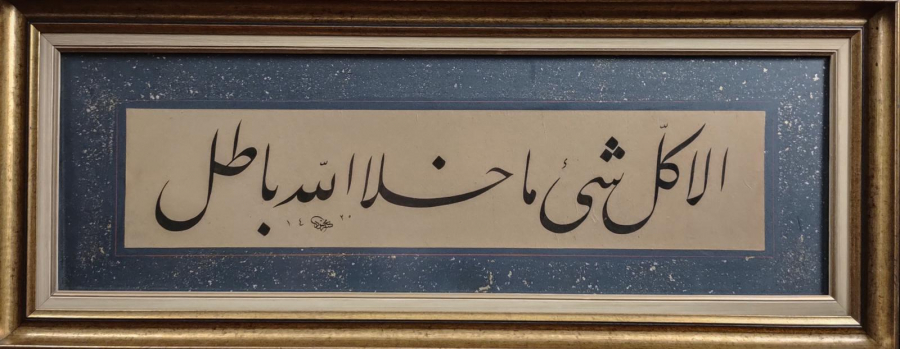 الا كلّ شئ ما خلا اللّٰه باطل